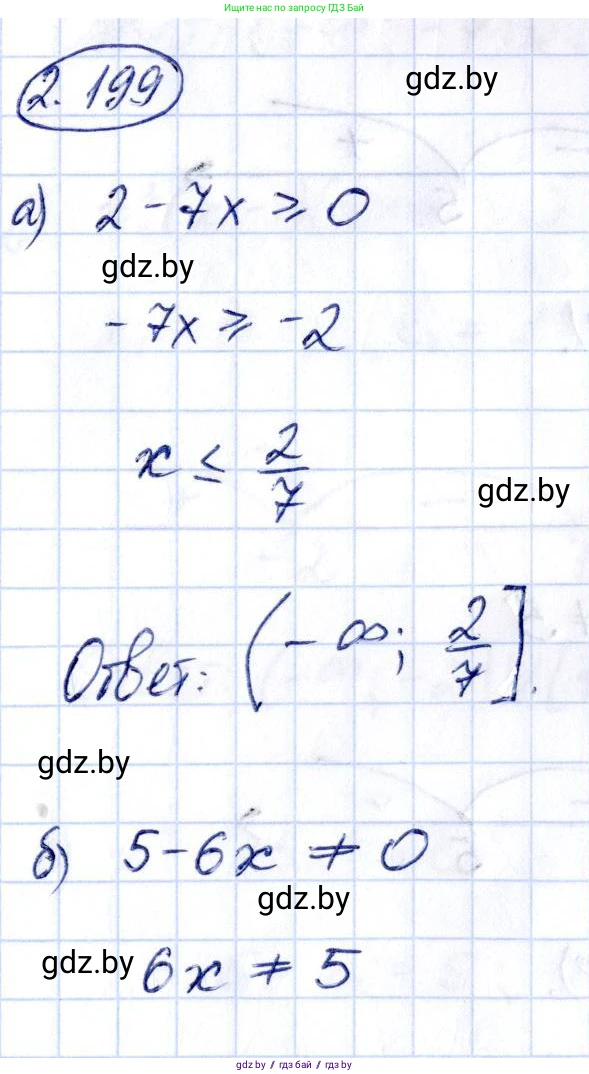 Ищите нас по запросу ГДЗ Бай
2.199
gdz.by
а) 2 - 7x ≥ 0
gdz.by
- 7x ≥ -2
x ≤ 2/7
gdz.by
Ответ: (- ∞; 2/7].
gdz.by
б) 5 - 6x ≠ 0
gdz.by
gdz.by
6x ≠ 5
gdz.by // гдз бай // gdz.by